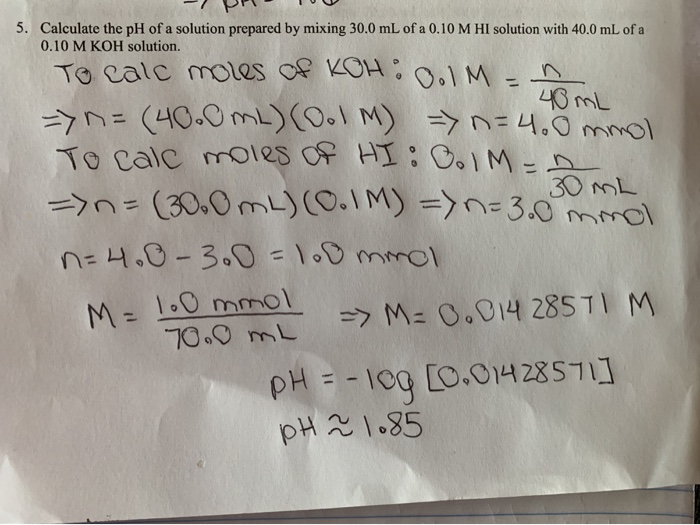 5. Calculate the pH of a solution prepared by mixing 30.0 mL of a 0.10 M HI solution with 40.0 mL of a
0.10 M KOH solution.
To calc moles of KOH : 0.1 M = n / 40 mL
=> n = (40.0 mL)(0.1 M) => n = 4.0 mmol
To calc moles of HI : 0.1 M = n / 30 mL
=> n = (30.0 mL)(0.1 M) => n = 3.0 mmol
n = 4.0 - 3.0 = 1.0 mmol
M = 1.0 mmol / 70.0 mL => M = 0.01428571 M
pH = - log [0.01428571]
pH ≈ 1.85